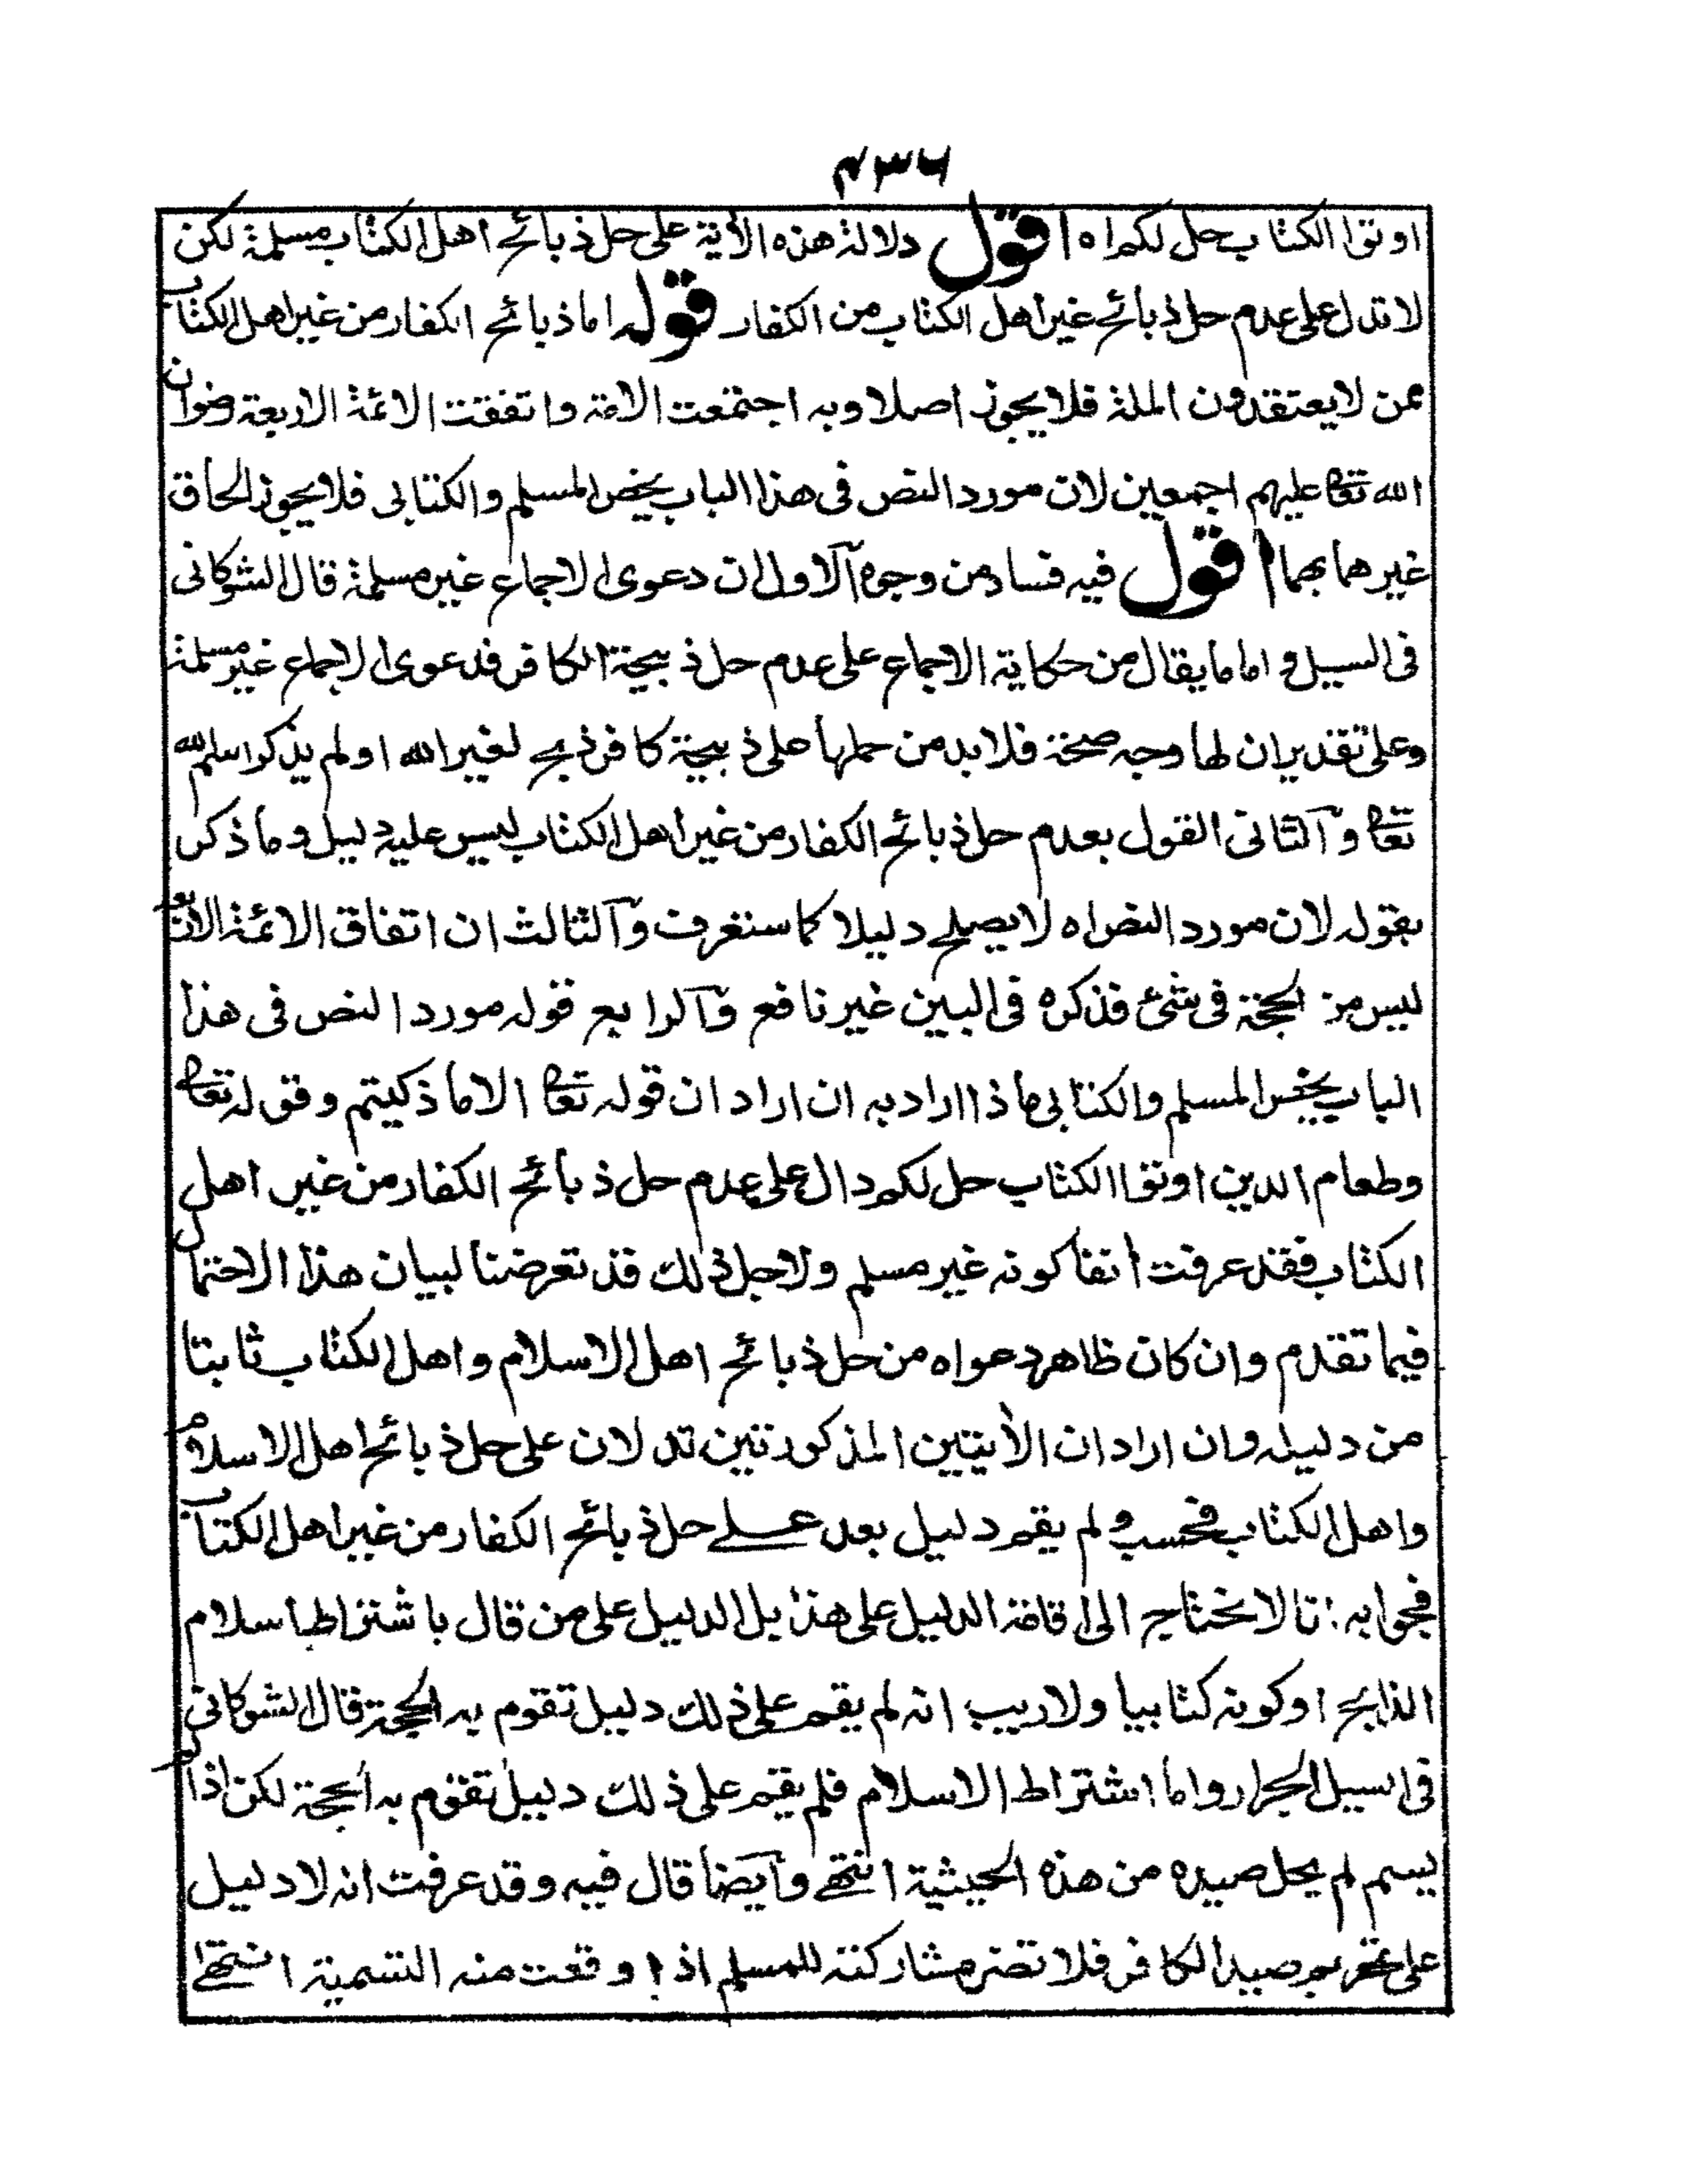 ۴۳۶
اوتوا الكتاب حل لكم اه اقول دلالة هذه الأية على حل ذبائح اهل الكتاب مسلمة لكن
لا تدل على عدم حل ذبائح غير اهل الكتاب من الكفار قوله اما ذبائح الكفار من غير اهل الكتاب
ممن لا يعتقدون الملة فلا يجوز اصلا وبه اجتمعت الامة واتفقت الائمة الاربعة رضوان
الله تعا عليهم اجمعين لان مورد النص فى هذا الباب يخص المسلم والكتابى فلا يجوز الحاق
غيرهما بهما اقول فيه فساد من وجوه آلاول ان دعوى الاجماع غير مسلمة قال الشوكانى
فى السيل و اما ما يقال من حكاية الاجماع على عدم حل ذبيحة الكافر فدعوى الاجماع غير مسلمة
وعلى تقدير ان لها وجه صحة فلا بد من حملها على ذبيحة كافر ذبح لغير الله او لم يذكر اسم الله
تعا و آلثانى القول بعدم حل ذبائح الكفار من غير اهل الكتاب ليس عليه دليل وما ذكر
بقوله لان مورد النص اه لا يصلح دليلا كما ستعرف و آلثالث ان اتفاق الائمة الاربعة
ليس من الحجة فى شئ فذكره فى البين غير نافع و آلرابع قوله مورد النص فى هذا
الباب يخص المسلم والكتابى ماذا اراد به ان اراد ان قوله تعا الا ما ذكيتم و قوله تعا
وطعام الذين اوتوا الكتاب حل لكم دال على عدم حل ذبائح الكفار من غير اهل
الكتاب فقد عرفت أنفا كونه غير مسلم ولاجل ذلك قد تعرضنا لبيان هذا الاحتمال
فيما تقدم وان كان ظاهر دعواه من حل ذبائح اهل الاسلام واهل الكتاب ثابتا
من دليله وان اراد ان الأيتين المذكورتين تدلان على حل ذبائح اهل الاسلام
واهل الكتاب فحسب و لم يقم دليل بعد على حل ذبائح الكفار من غير اهل الكتاب
فجوابه انا لا نحتاج الى اقامة الدليل على هذا بل الدليل على من قال باشتراط اسلام
الذابح اوكونه كتابيا ولا ريب انه لم يقم على ذلك دليل تقوم به الحجة قال الشوكانى
فى السيل الجرار واما اشتراط الاسلام فلم يقم على ذلك دليل تقوم به الحجة لكن اذا لم
يسم لم يحل صيده من هذه الحيثية انتهى و آيضا قال فيه وقد عرفت انه لا دليل
على تحريم صيد الكافر فلا تضر مشاركته للمسلم اذا وقعت منه التسمية انتهى